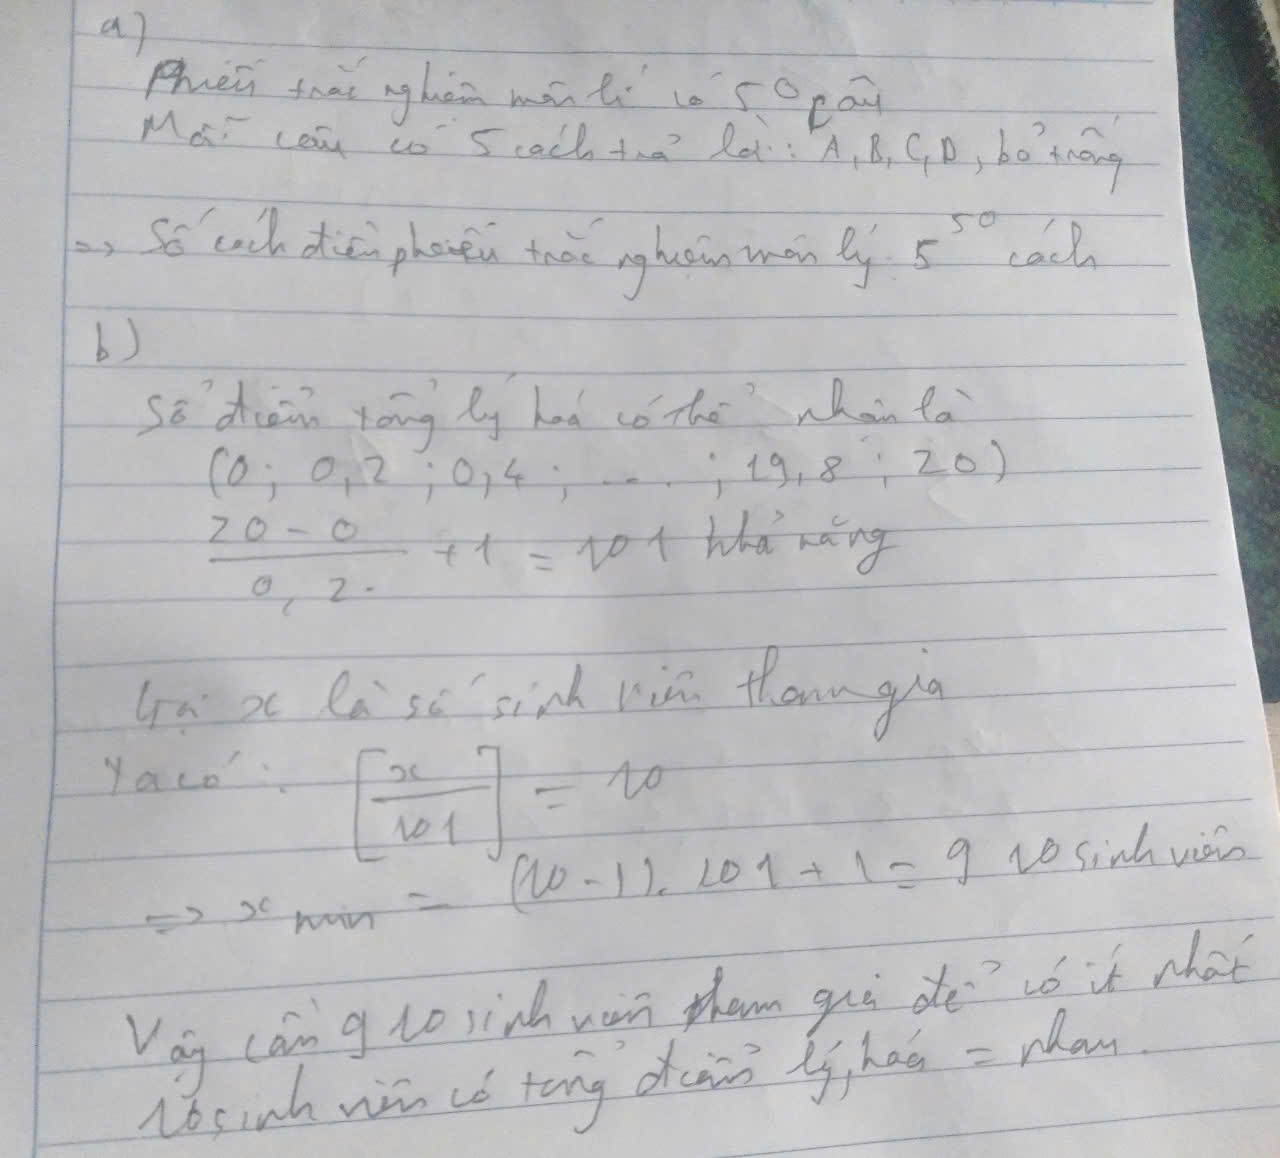 a)
Phiếu trắc nghiệm môn lí có 50 câu
Mỗi câu có 5 cách trả lời: A, B, C, D, bỏ trống
=> Số cách điền phiếu trắc nghiệm môn lý 5^50 cách
b)
Số điểm tổng lý hoá có thể nhận là
(0; 0,2; 0,4; ....; 19,8; 20)
(20 - 0)/(0,2) + 1 = 101 khả năng
Gọi x là số sinh viên tham gia
Ta có: [x/101] = 10
=> x min = (10 - 1). 101 + 1 = 910 sinh viên
Vậy cần 910 sinh viên tham gia để có ít nhất
10 sinh viên có tổng điểm lý, hoá = nhau.